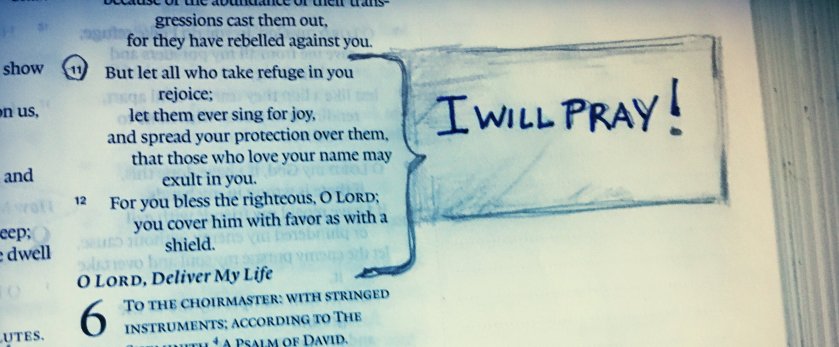 because of the abundance of their trans-
gressions cast them out,
for they have rebelled against you.
11 But let all who take refuge in you
rejoice;
let them ever sing for joy,
and spread your protection over them,
that those who love your name may
exult in you.
12 For you bless the righteous, O LORD;
you cover him with favor as with a
shield.
O LORD, Deliver My Life
6 TO THE CHOIRMASTER: WITH STRINGED
INSTRUMENTS; ACCORDING TO THE
4 A PSALM OF DAVID.
show
on us,
and
eep;
dwell
UTES.
I WILL PRAY!